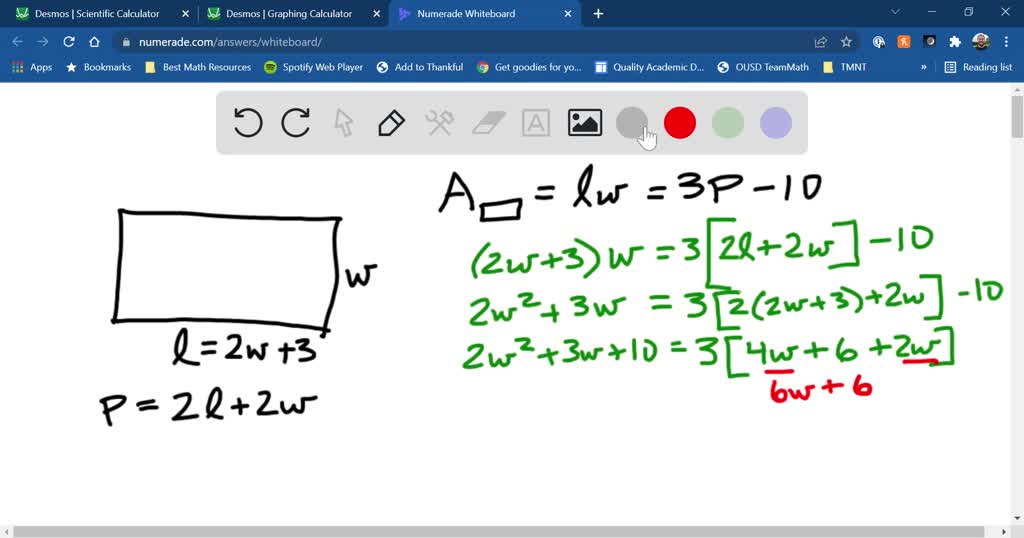 Desmos | Scientific Calculator
Desmos | Graphing Calculator
Numerade Whiteboard
numerade.com/answers/whiteboard/
Apps
Bookmarks
Best Math Resources
Spotify Web Player
Add to Thankful
Get goodies for yo...
Quality Academic D...
OUSD TeamMath
TMNT
»
Reading list
A
A▭ = lw = 3P - 10
(2w+3)w = 3[2l+2w] - 10
w
2w² + 3w = 3[2(2w+3)+2w] - 10
l = 2w+3
2w² + 3w + 10 = 3[4w + 6 + 2w]
6w + 6
P = 2l + 2w